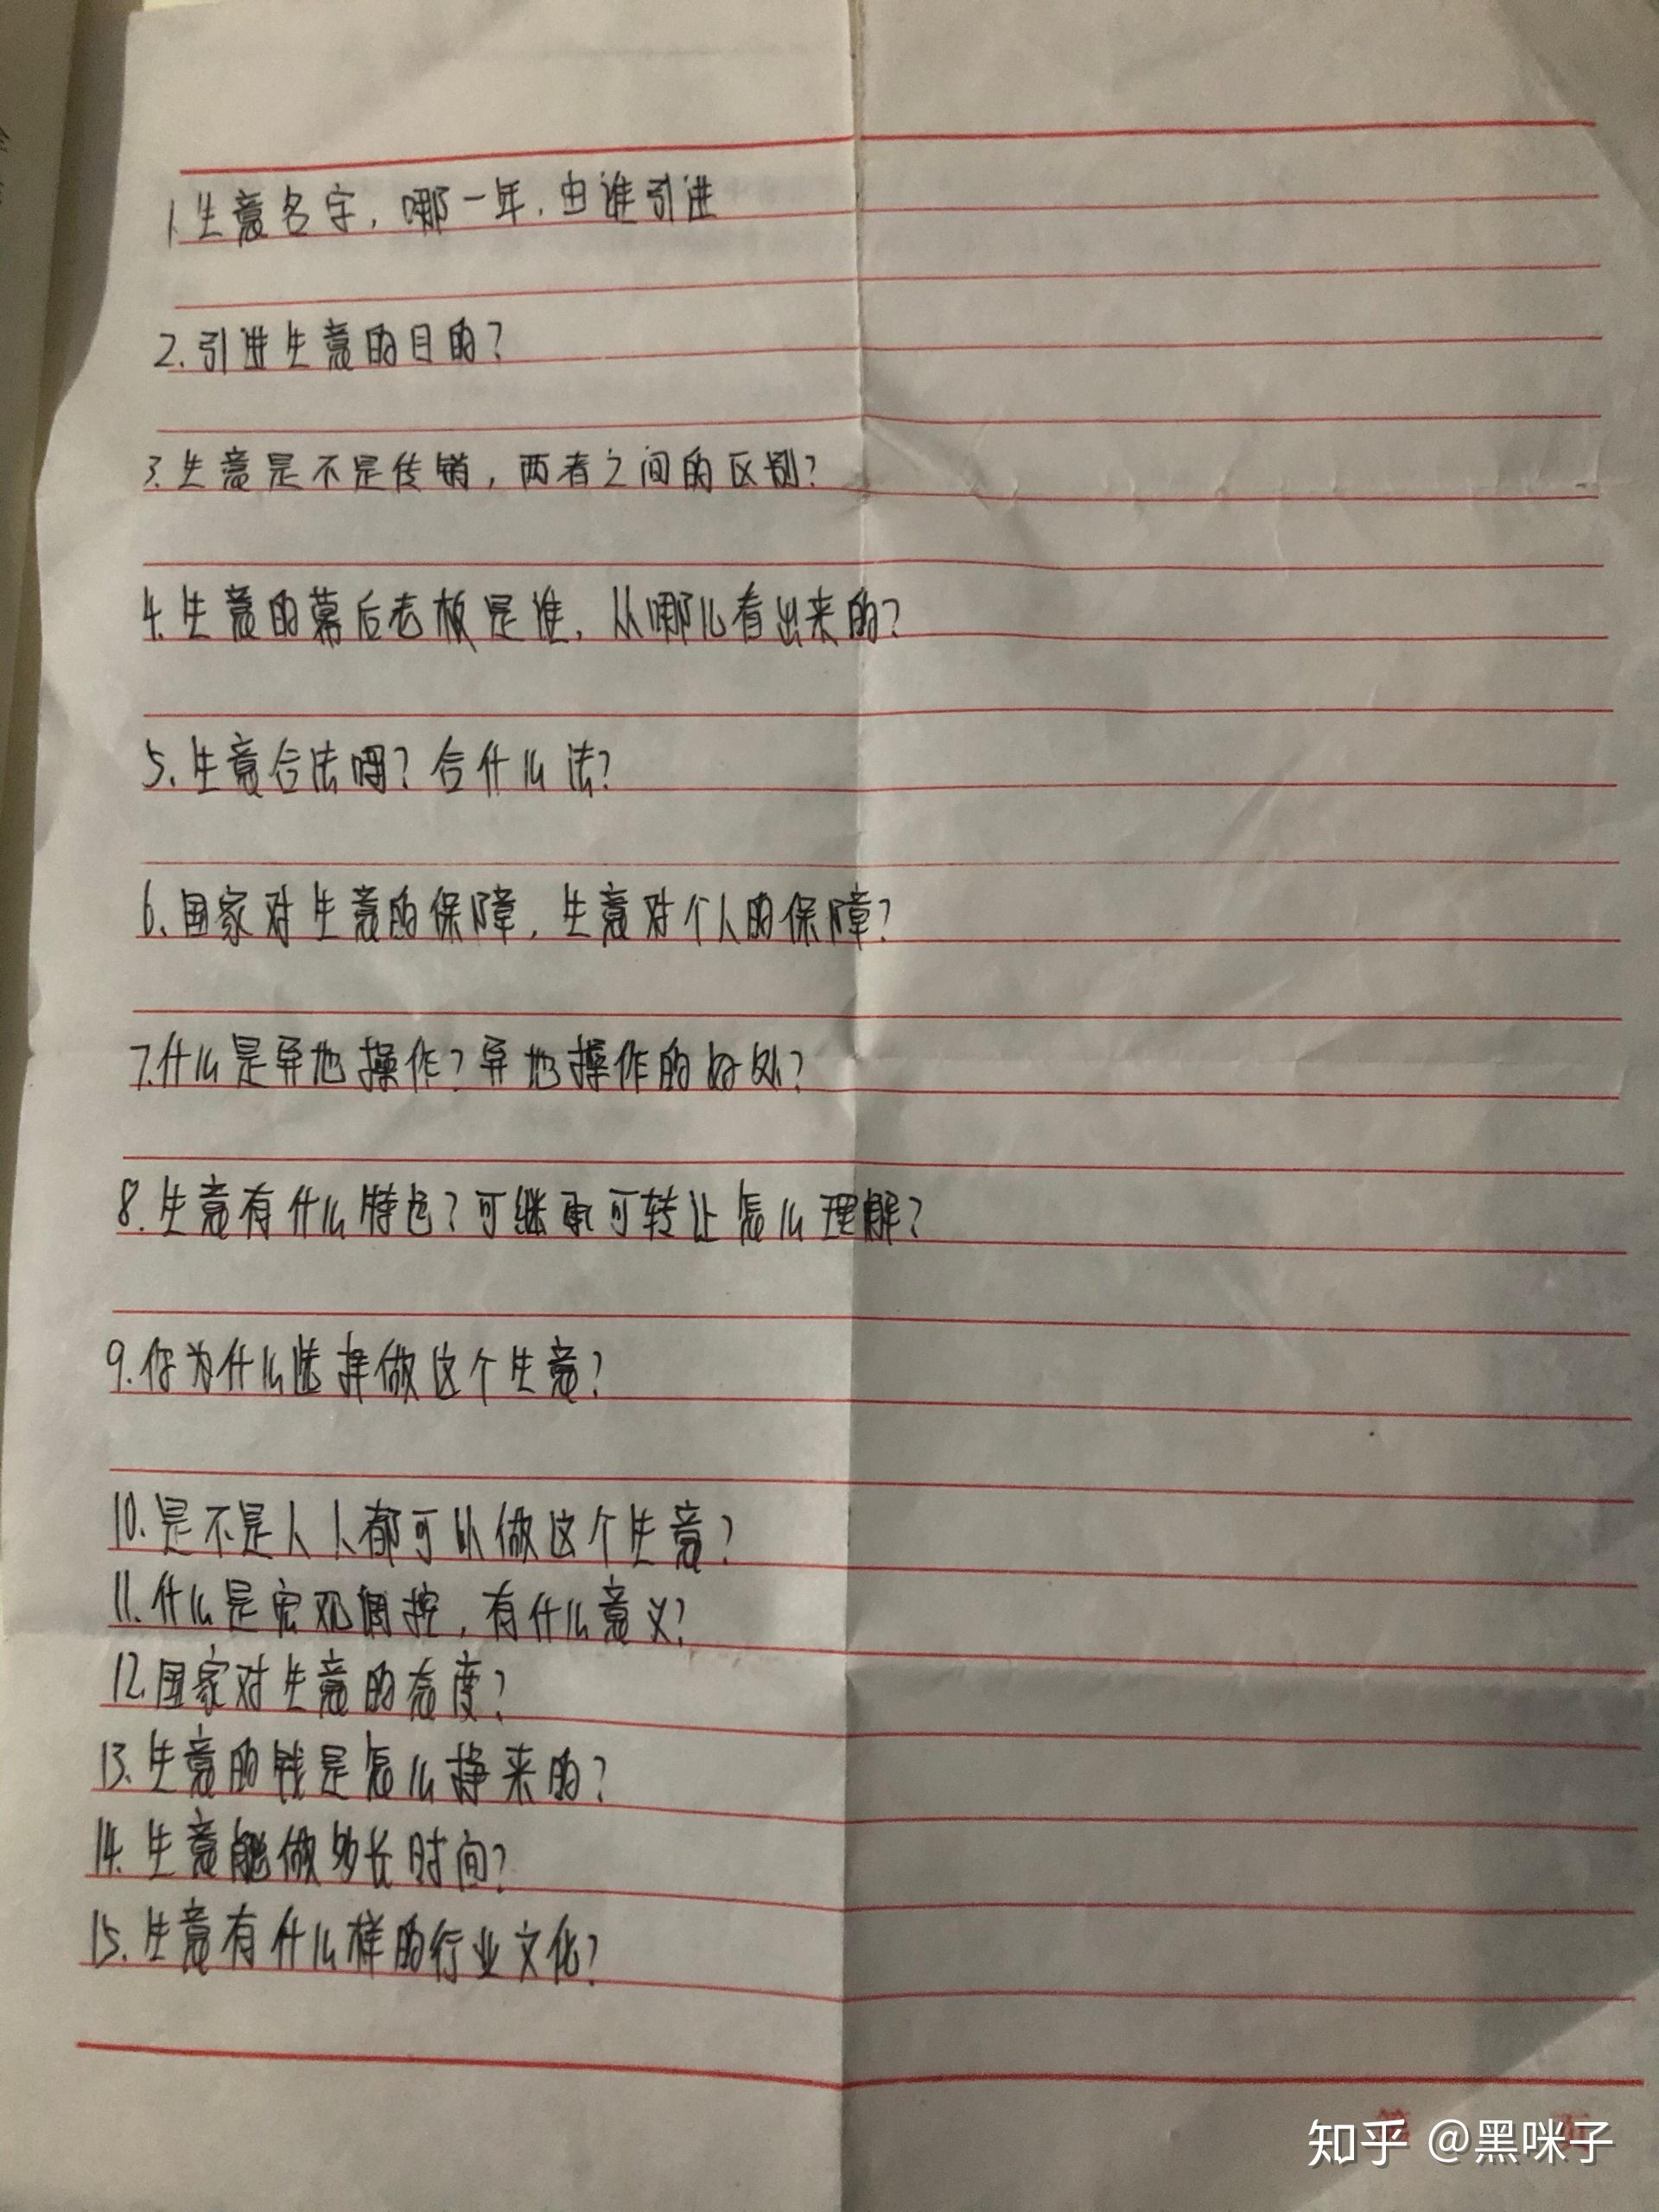 1.生意名字，哪一年，由谁引进
2.引进生意的目的？
3.生意是不是传销，两者之间的区别？
4.生意的幕后老板是谁，从哪儿看出来的？
5.生意合法吗？合什么法？
6.国家对生意的保障，生意对个人的保障？
7.什么是异地操作？异地操作的好处？
8.生意有什么特色？可继承可转让怎么理解？
9.你为什么选择做这个生意？
10.是不是人人都可以做这个生意？
11.什么是宏观调控，有什么意义？
12.国家对生意的态度？
13.生意的钱是怎么挣来的？
14.生意能做多长时间？
15.生意有什么样的行业文化？
知乎 @黑咪子